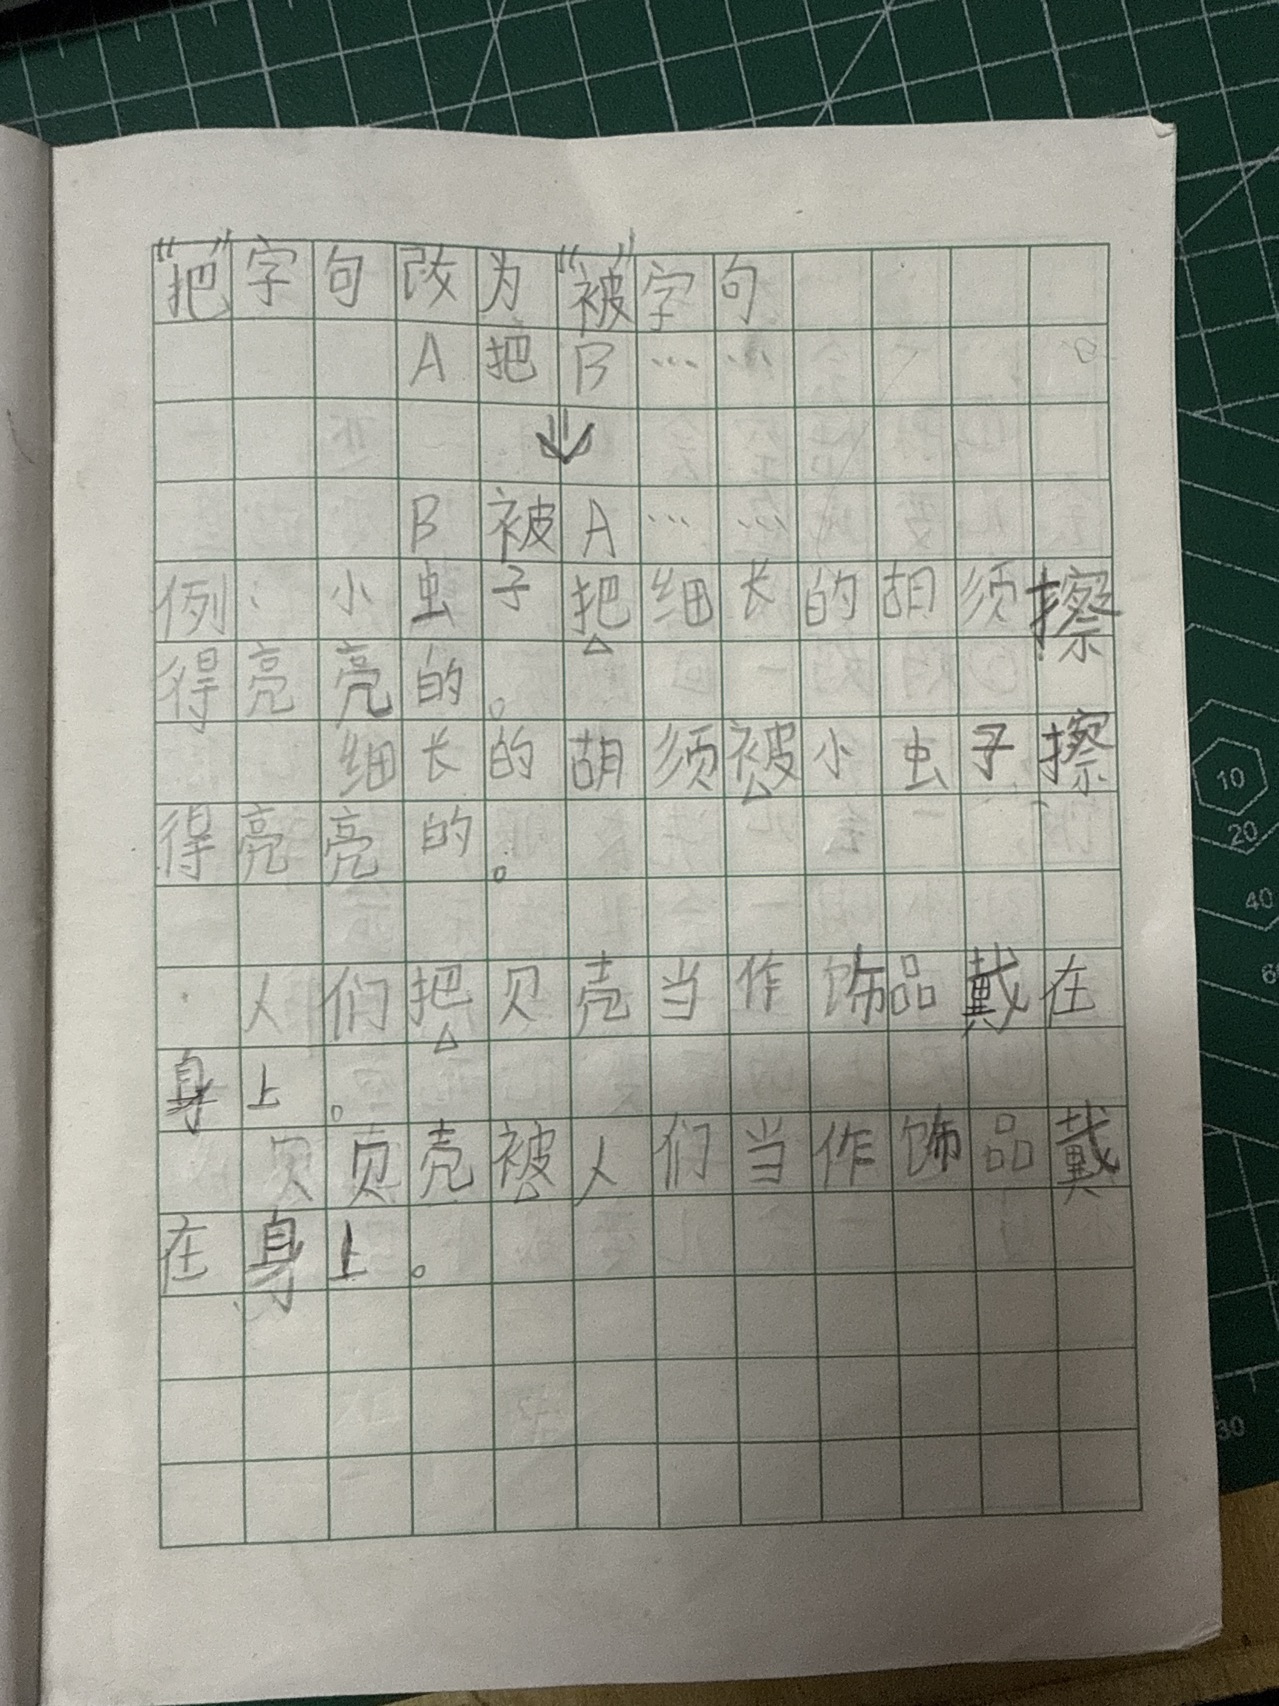 “把”字句改为“被”字句
A把B……
⇓
B被A……
例：小虫子把细长的胡须擦
得亮亮的。
细长的胡须被小虫子擦
得亮亮的。
人们把贝壳当作饰品戴在
身上。
贝贝壳被人们当作饰品戴
在身上。
10
20
40
30